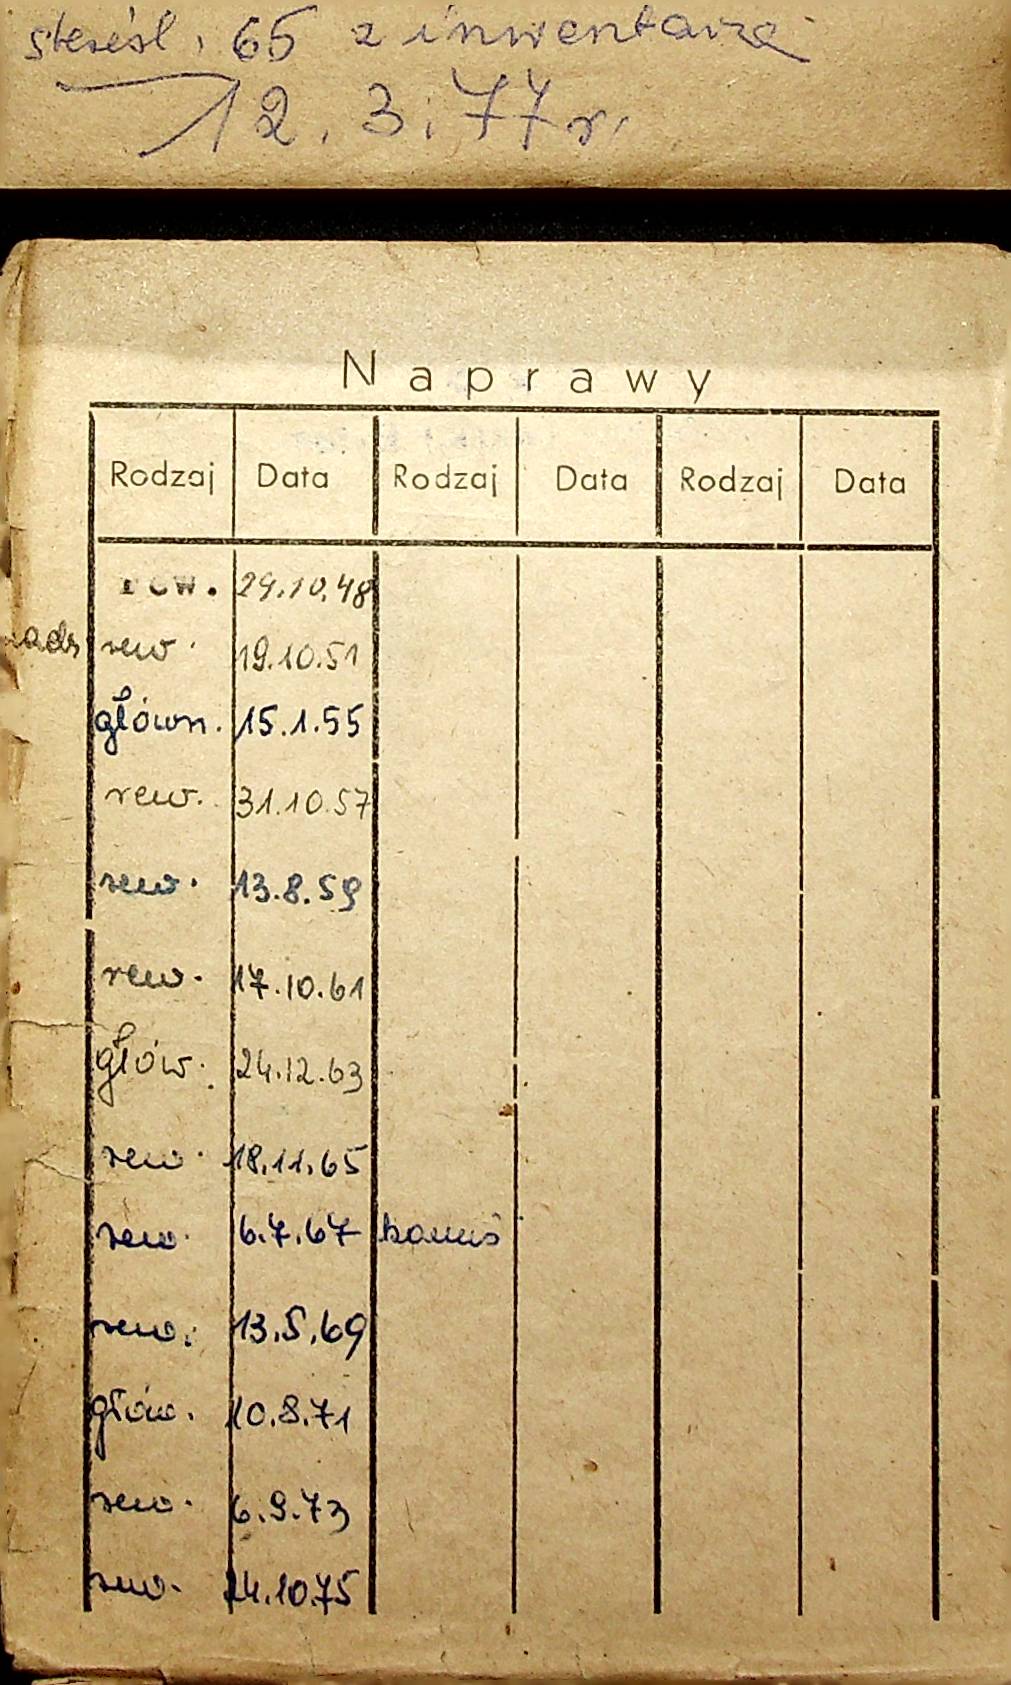 z inwentarza
12.3.77 r.
Naprawy
Rodzaj Data Rodzaj Data Rodzaj Data
rew. 29.10.48
nadz rew. 19.10.51
główn. 15.1.55
rew. 31.10.57
rew. 13.8.59
rew. 17.10.61
głów. 24.12.63
rew. 18.11.65
rew. 6.7.67
rew. 13.5.69
głów. 10.8.71
rew. 6.9.73
rew. 24.10.75